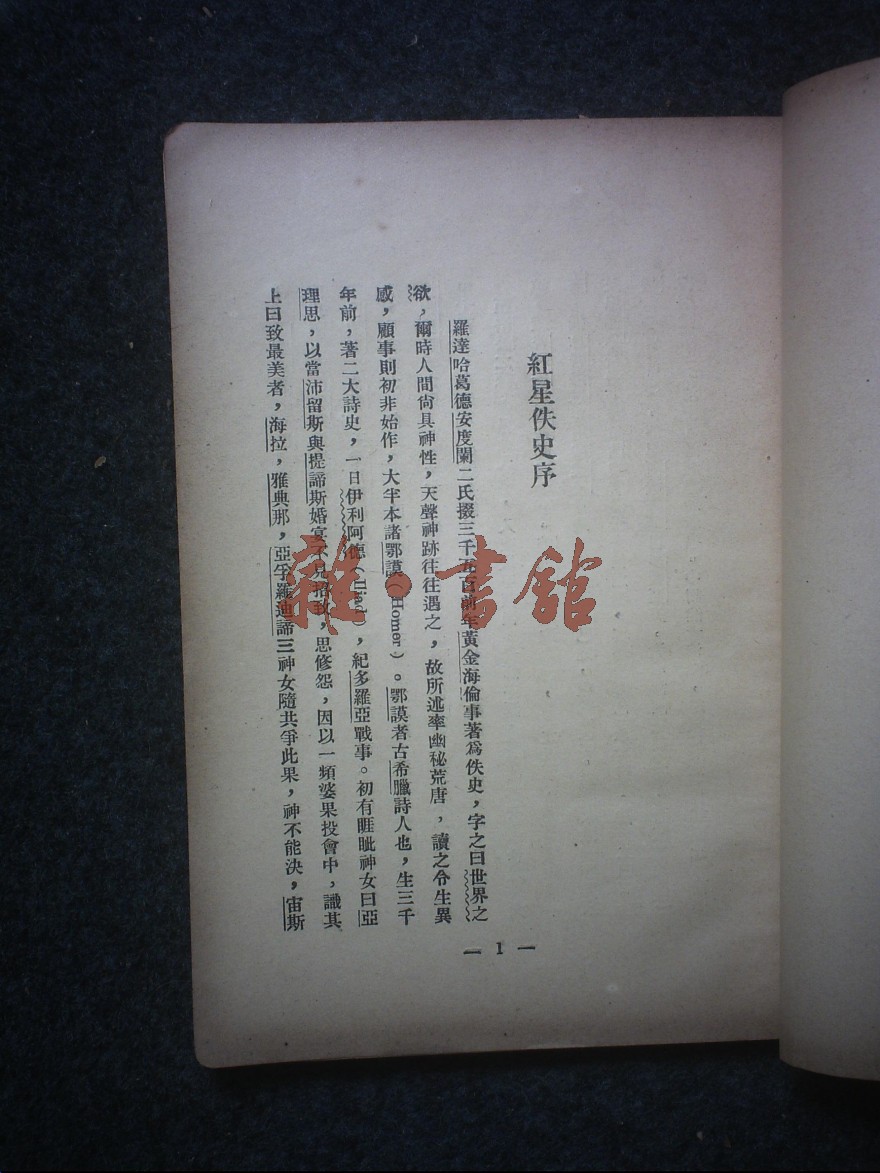 紅星佚史序
羅達哈葛德安度闌二氏掇三千五百前年黃金海倫事著爲佚史，字之曰世界之
欲，爾時人間尙具神性，天聲神跡往往遇之，故所述率幽秘荒唐，讀之令生異
感，顧事則初非始作，大半本諸鄂謨（Homer）。鄂謨者古希臘詩人也，生三千
年前，著二大詩史，一曰伊利阿德（Iliad），紀多羅亞戰事。初有睚眦神女曰亞
理思，以當沛留斯與提諦斯婚宴不見招致，思修怨，因以一頻婆果投會中，識其
上曰致最美者，海拉，雅典那，亞孚羅迪諦三神女隨共爭此果，神不能決，宙斯
— 1 —
雜·書館